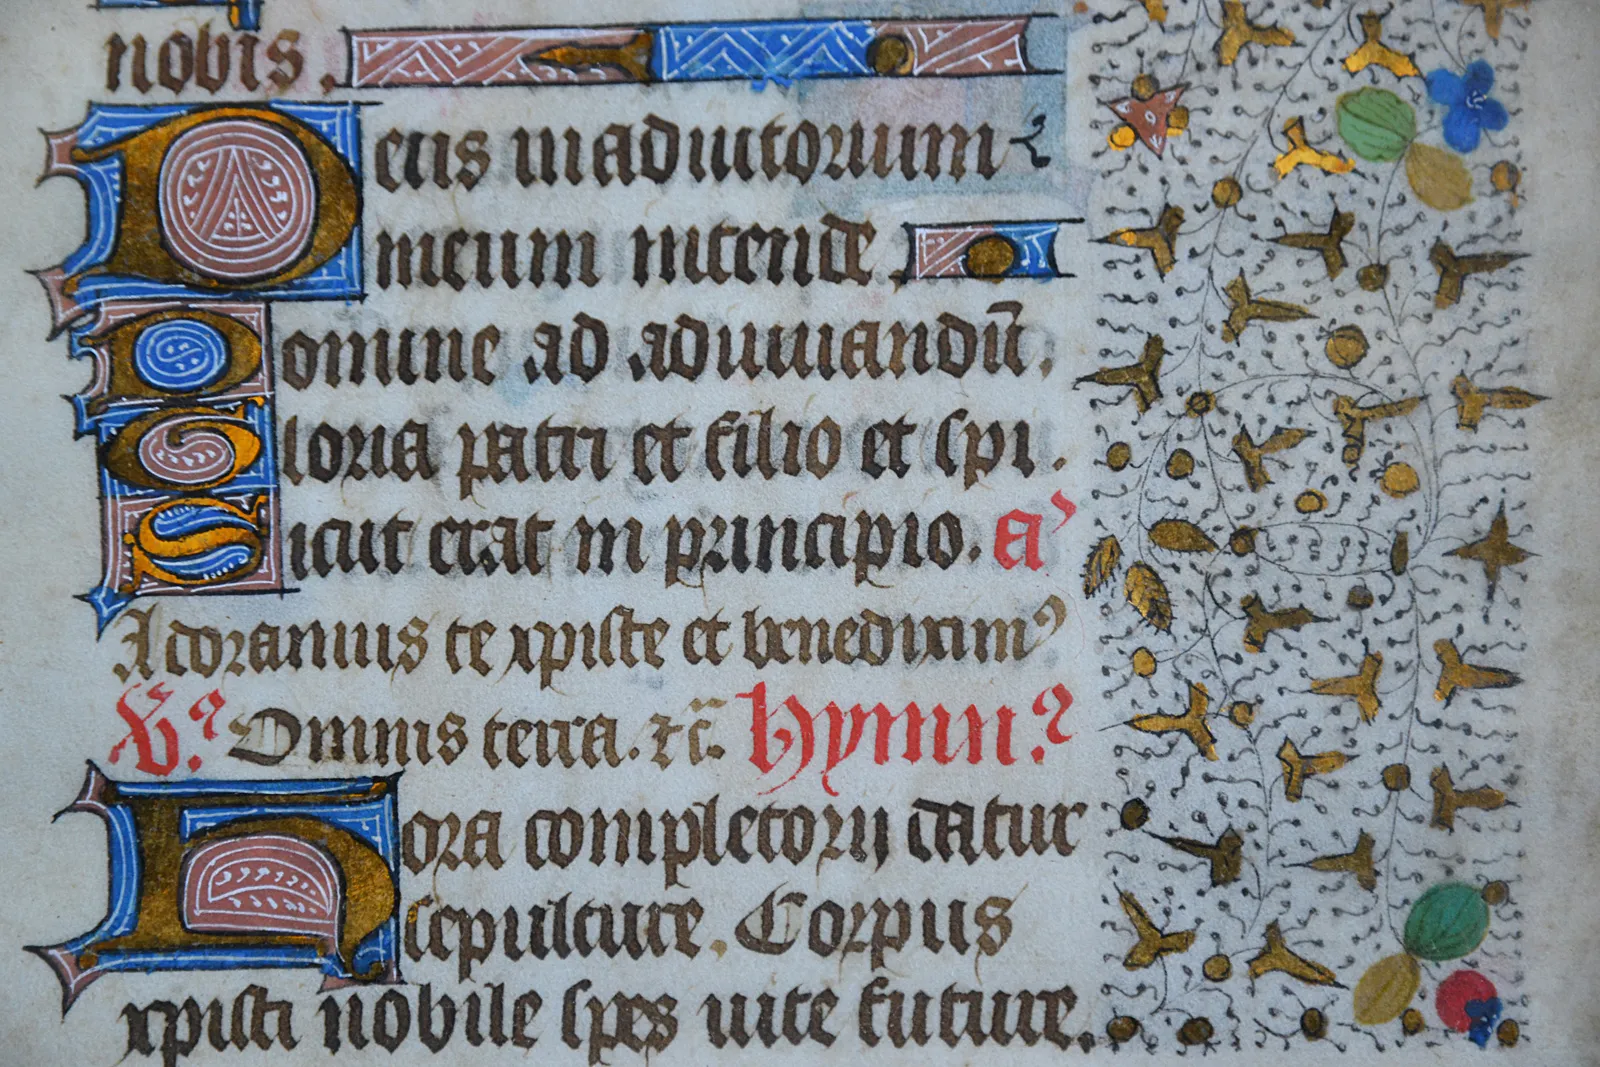 nobis.
Deus in adiutorium
meum intende.
Domine ad adiuuandū.
Gloria patri et filio et spi.
Sicut erat in principio. a'
Adoramus te xpiste et benediximꝰ
℣ꝰ Omnis terra. ⁊c̄. Hymnꝰ
Hora completorij datur
sepulture. Corpus
xpisti nobile spes uite future.